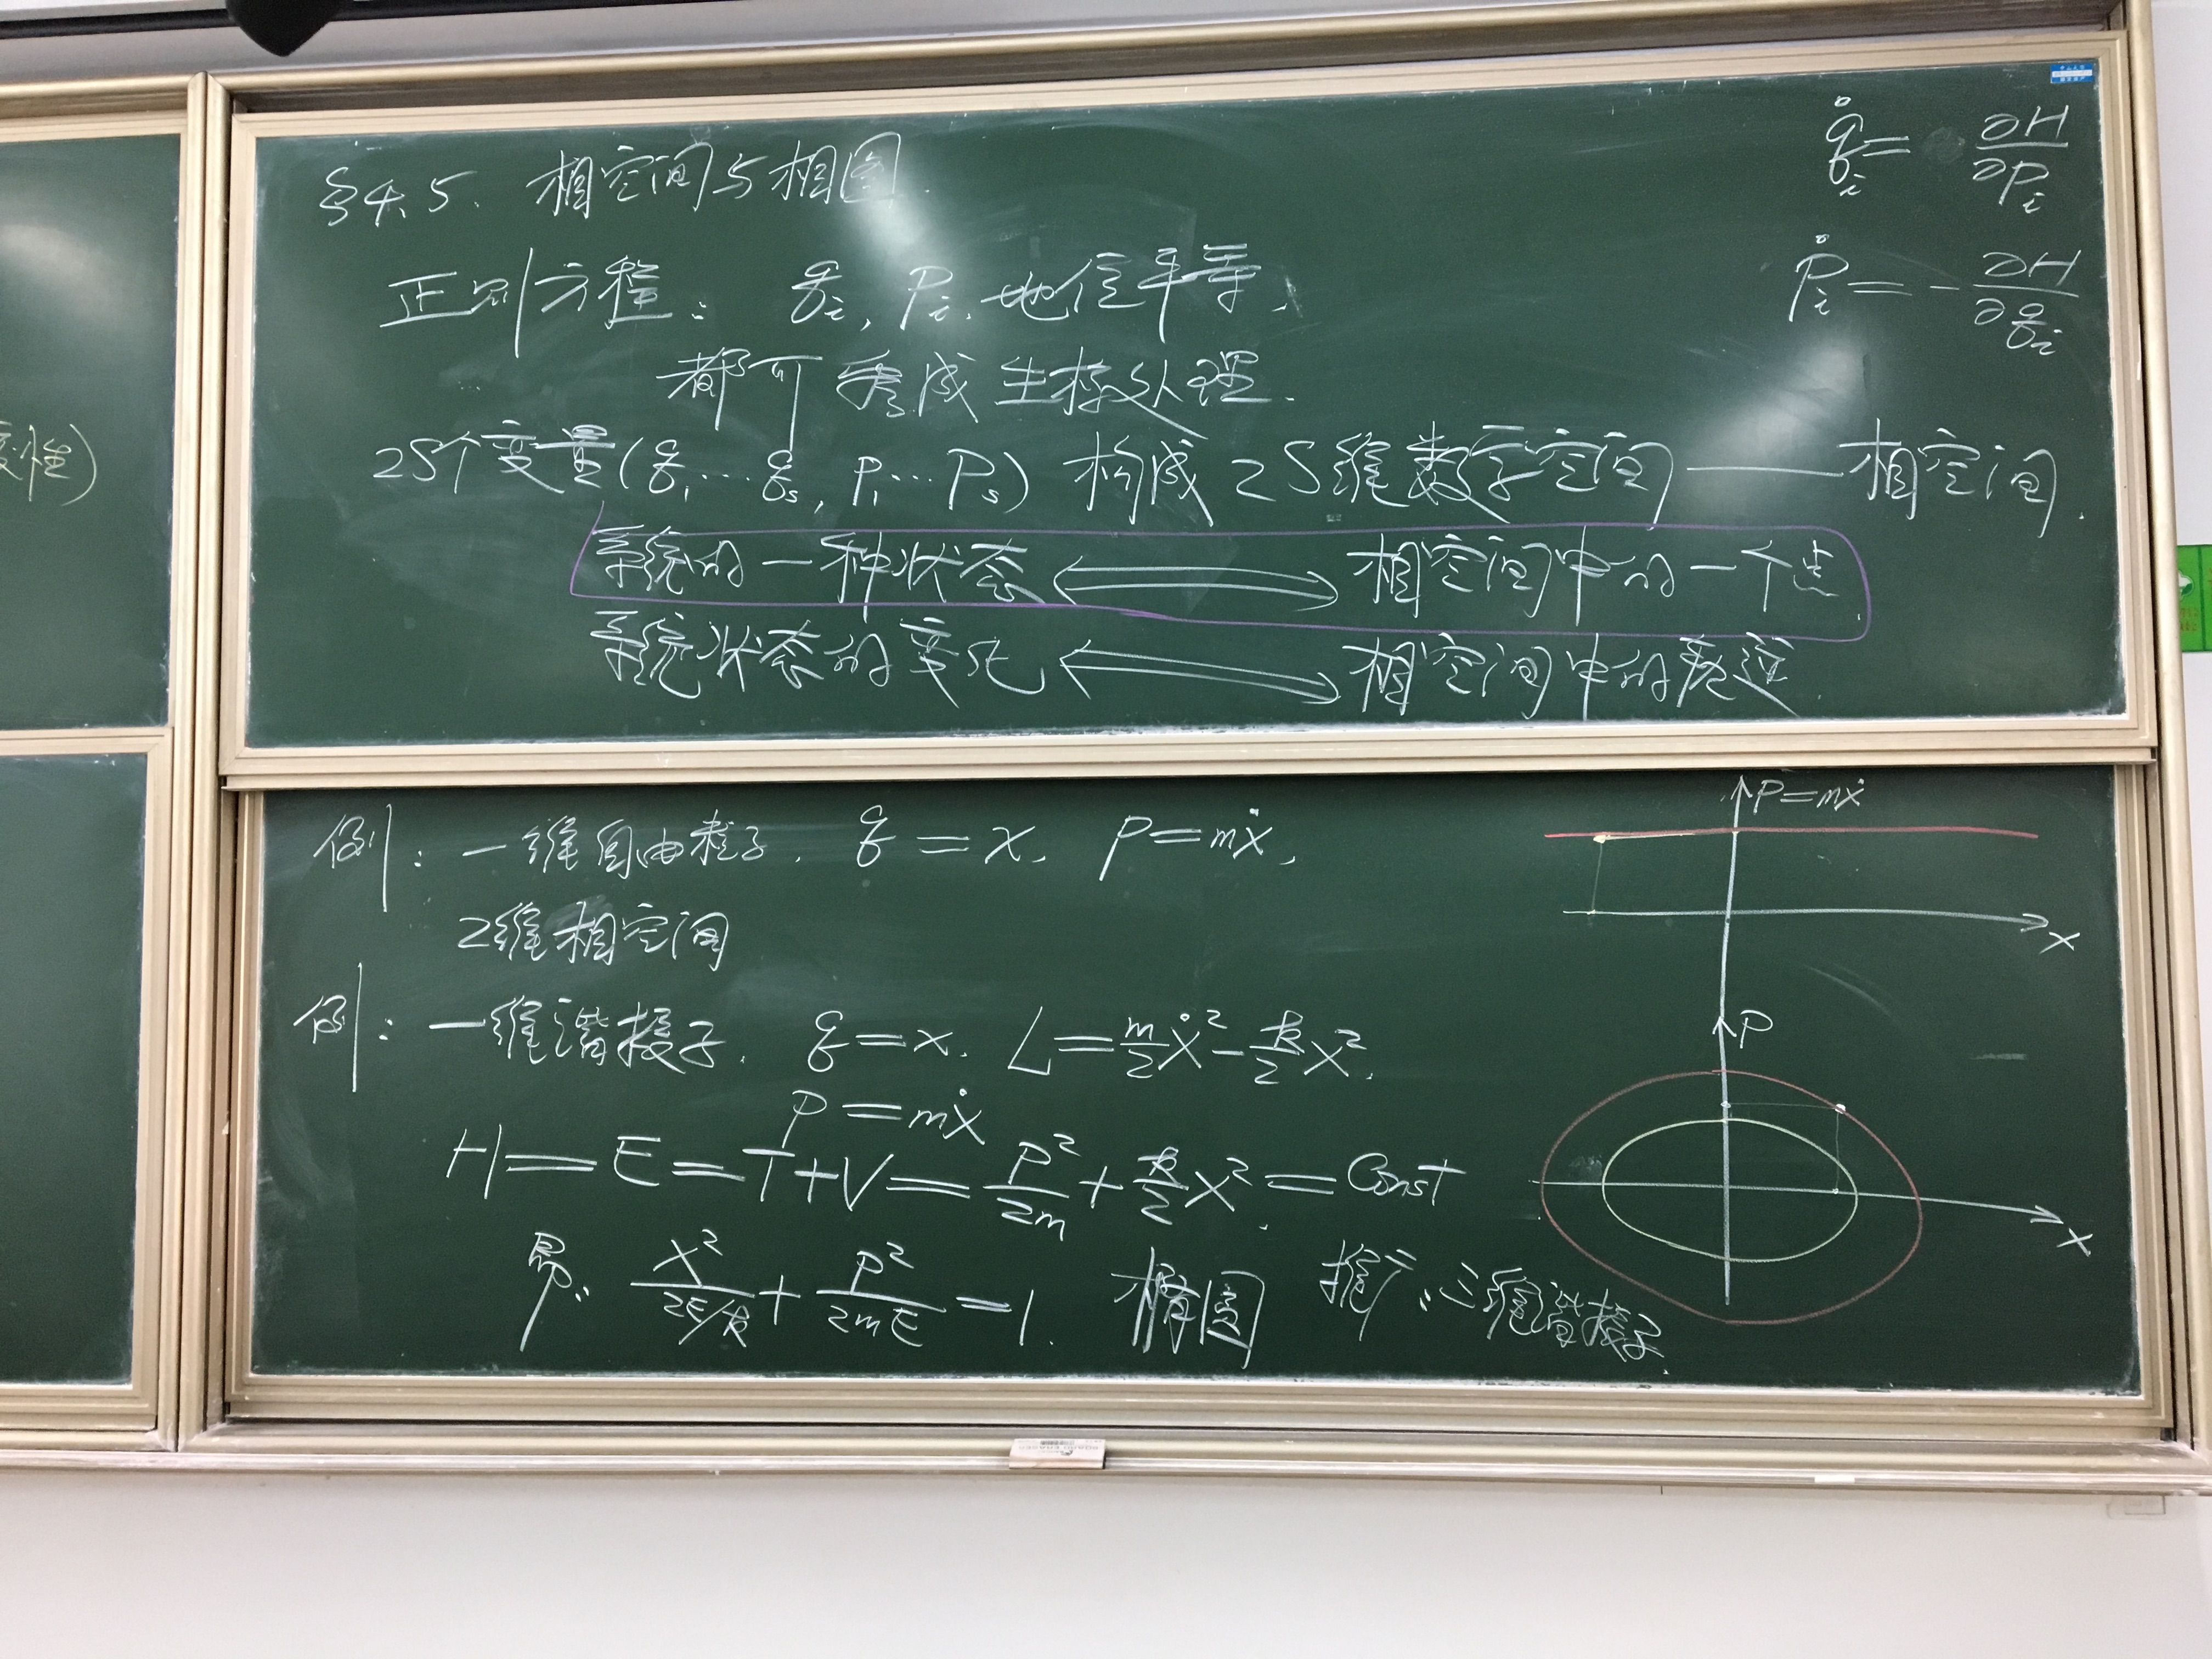 §4.5. 相空间与相图.
q̇ᵢ = ∂H/∂Pᵢ
正则方程: qᵢ, Pᵢ, 地位平等,
Ṗᵢ = -∂H/∂qᵢ
都可看成坐标处理.
2S个变量(q₁…qₛ, P₁…Pₛ) 构成 2S维数学空间 —— 相空间.
系统的一种状态 ⟺ 相空间中的一个点.
系统状态的变化 ⟺ 相空间中的轨迹.
变性)
例: 一维自由粒子. q = x, P = mẋ,
2维相空间
P=mẋ
x
例: 一维谐振子. q = x. L = m/2 ẋ² - k/2 x².
P = mẋ
H = E = T+V = P²/2m + k/2 x² = Const
即: x²/(2E/k) + P²/2mE = 1. 椭圆 推广: 三维谐振子.
P
x